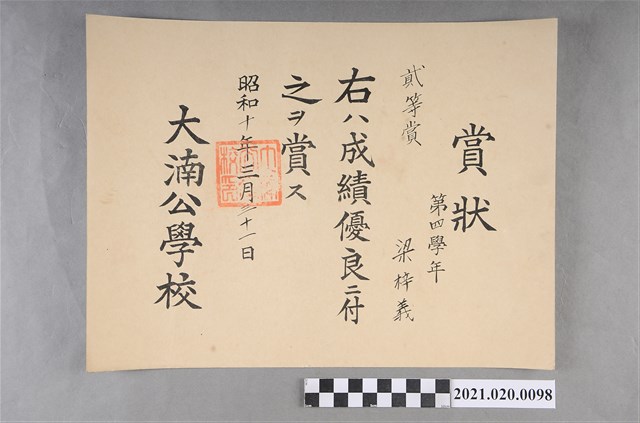 賞狀
第四學年
梁梓義
貳等賞
右ハ成績優良ニ付
之ヲ賞ス
昭和十年三月二十一日
大湳公學校
2021.020.0098